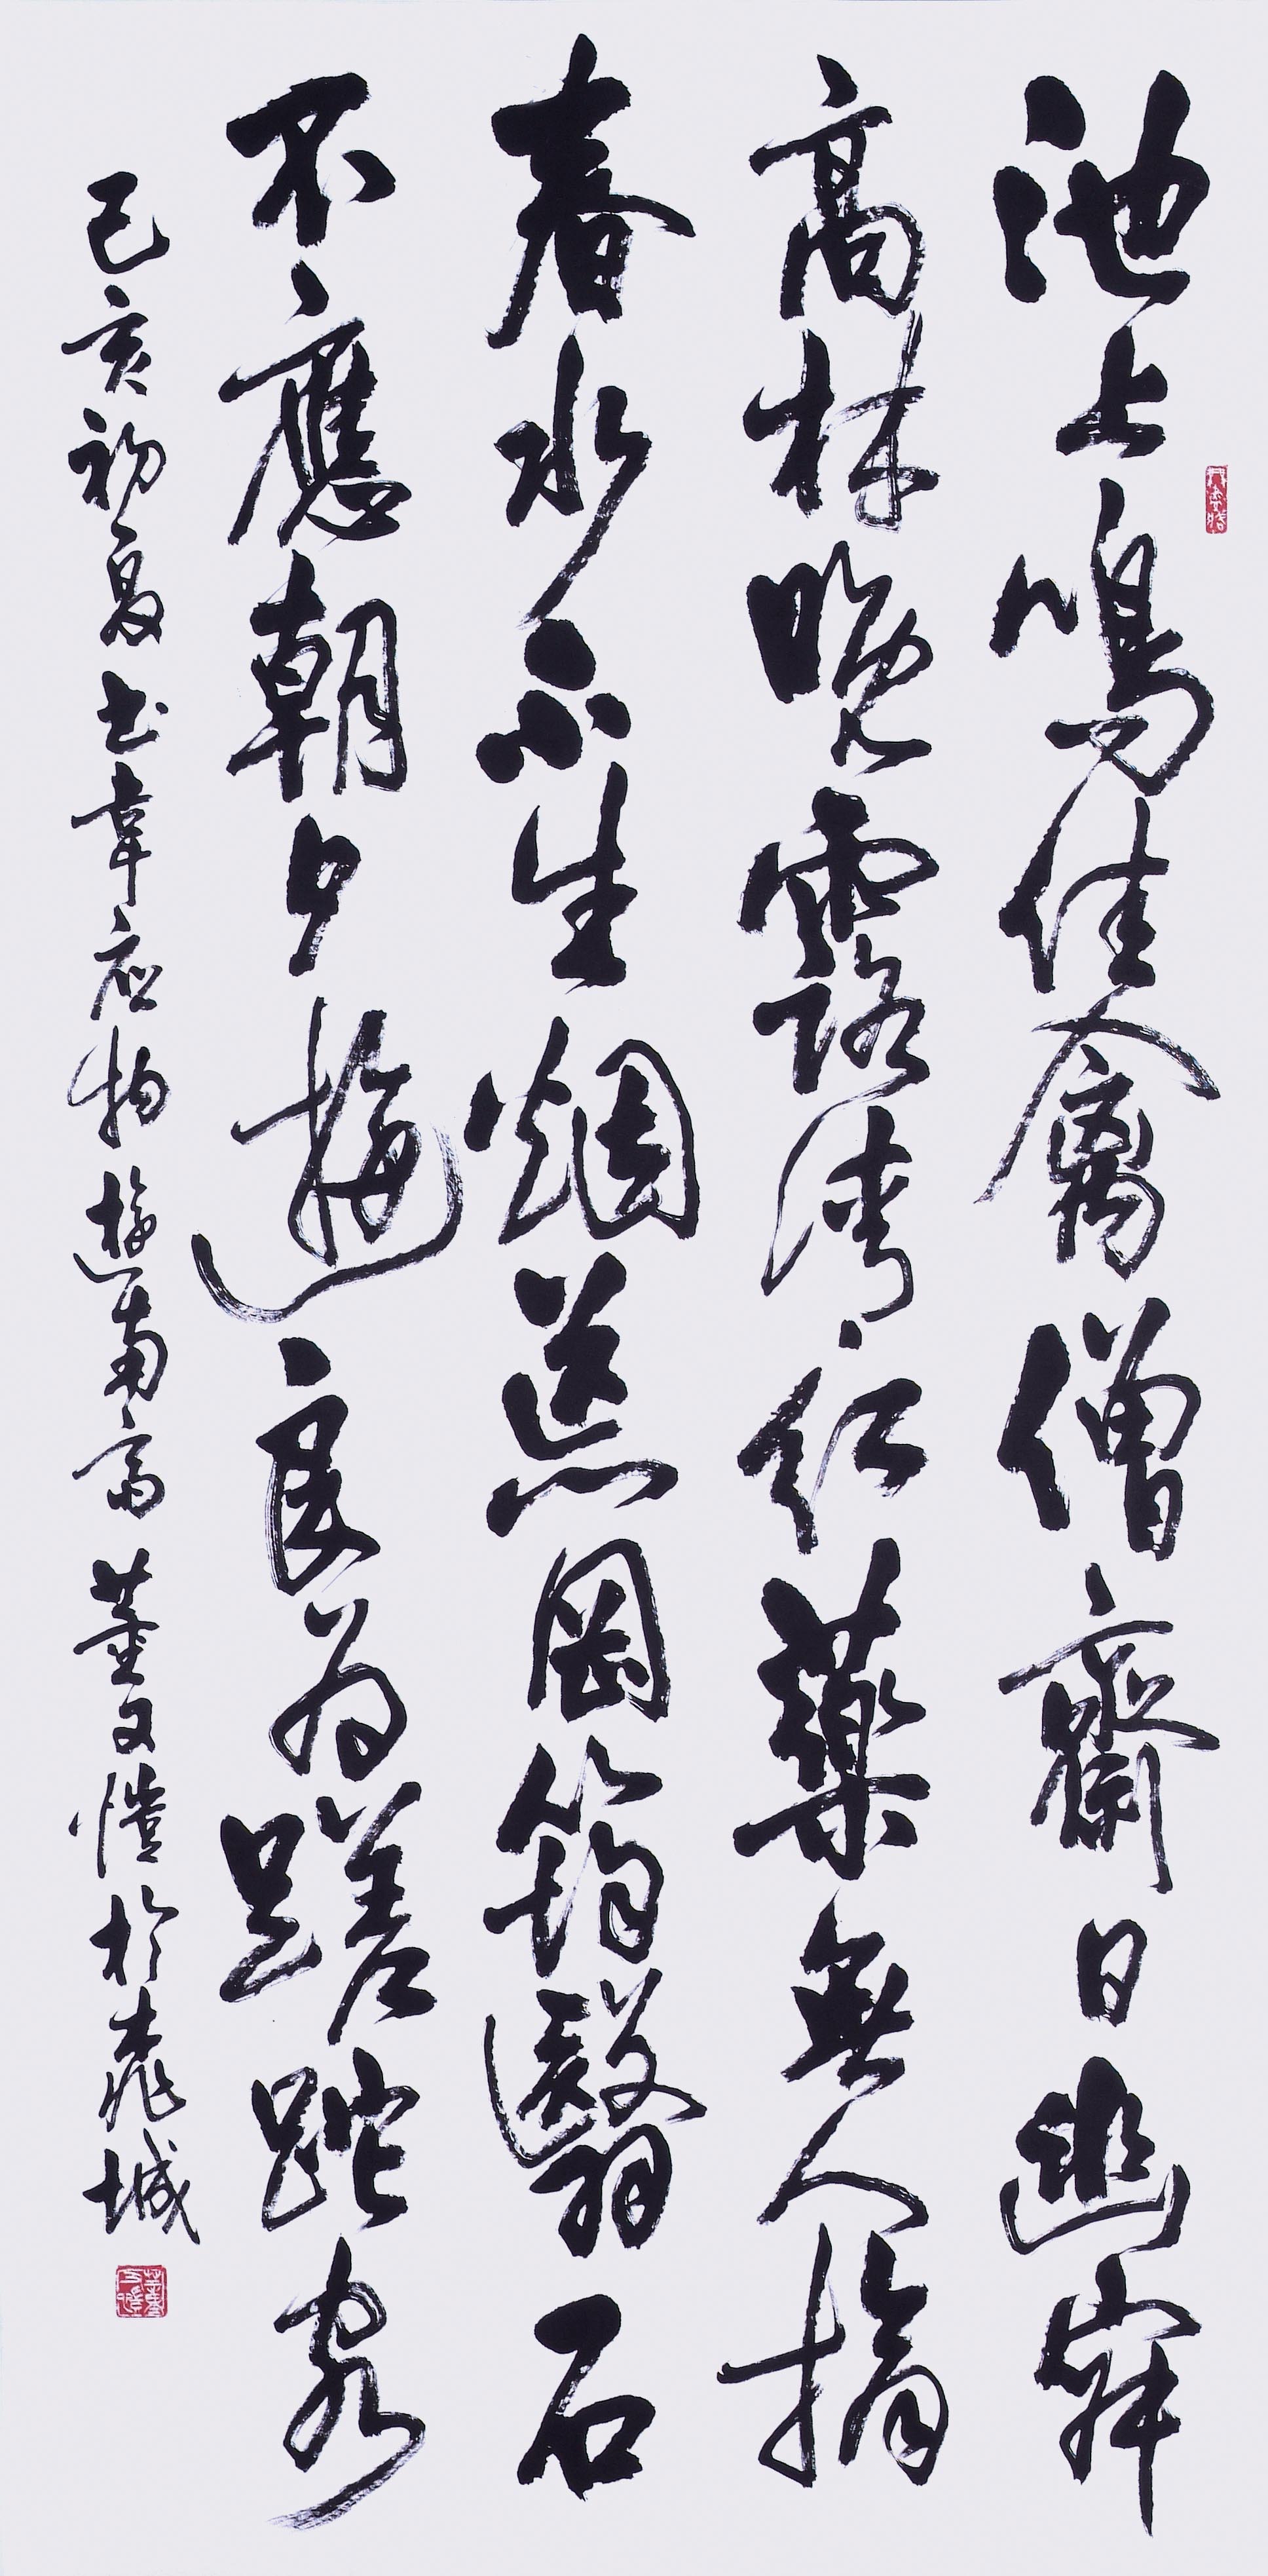 池上鳴佳禽僧齋日幽寂
高林晚露清紅藥無人摘
春水不生烟荒岡筠翳石
不應朝夕遊良為蹉跎客
己亥初夏书韋应物遊南斋 董文愷於城